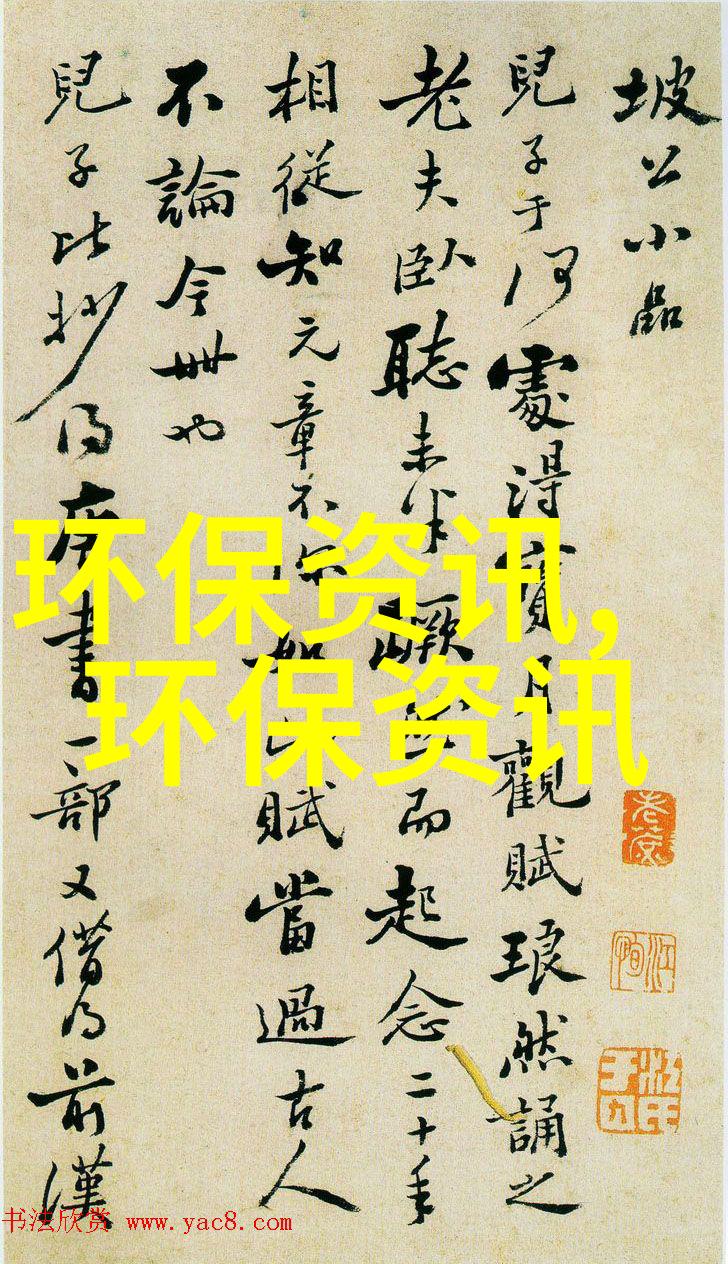 坡公小品
兒子于何處得寶月觀賦琅然誦之
老夫臥聽未半蹶然而起念二十年
相從知元章不如此賦當過古人
不論今世也
兒子比抄得唐書一部又借得前漢
环保资讯,
环保资讯
书法欣赏 www.yac8.com